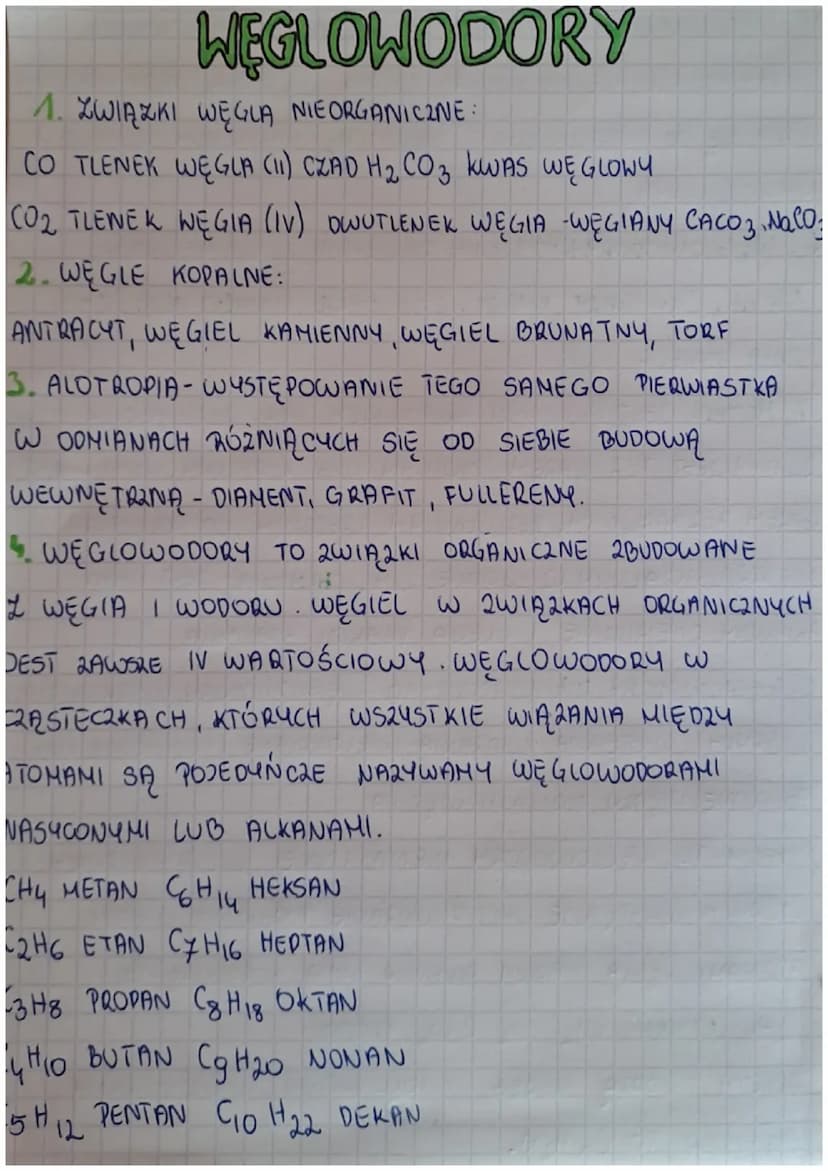 WĘGLOWODORY
1. ZWIĄZKI WĘGLA NIEORGANICZNE:
CO TLENEK WĘGLA (II) CZAD H₂CO₃ KWAS WĘGLOWY
CO₂ TLENEK WĘGLA (IV) DWUTLENEK WĘGLA -WĘGLANY CACO₃, NaCO₃
2. WĘGLE KOPALNE:
ANTRACYT, WĘGIEL KAMIENNY, WĘGIEL BRUNATNY, TORF
3. ALOTROPIA- WYSTĘPOWANIE TEGO SAMEGO PIERWIASTKA
W ODMIANACH RÓŻNIĄCYCH SIĘ OD SIEBIE BUDOWĄ
WEWNĘTRZNĄ - DIAMENT, GRAFIT, FULLERENY.
4. WĘGLOWODORY TO ZWIĄZKI ORGANICZNE ZBUDOWANE
Z WĘGLA I WODORU. WĘGIEL W ZWIĄZKACH ORGANICZNYCH
JEST ZAWSZE IV WARTOŚCIOWY. WĘGLOWODORY W
CZĄSTECZKACH, KTÓRYCH WSZYSTKIE WIĄZANIA MIĘDZY
ATOMAMI SĄ POJEDYŃCZE NAZYWAMY WĘGLOWODORAMI
NASYCONYMI LUB ALKANAMI.
CH₄ METAN C₆H₁₄ HEKSAN
C₂H₆ ETAN C₇H₁₆ HEPTAN
C₃H₈ PROPAN C₈H₁₈ OKTAN
C₄H₁₀ BUTAN C₉H₂₀ NONAN
C₅H₁₂ PENTAN C₁₀H₂₂ DEKAN